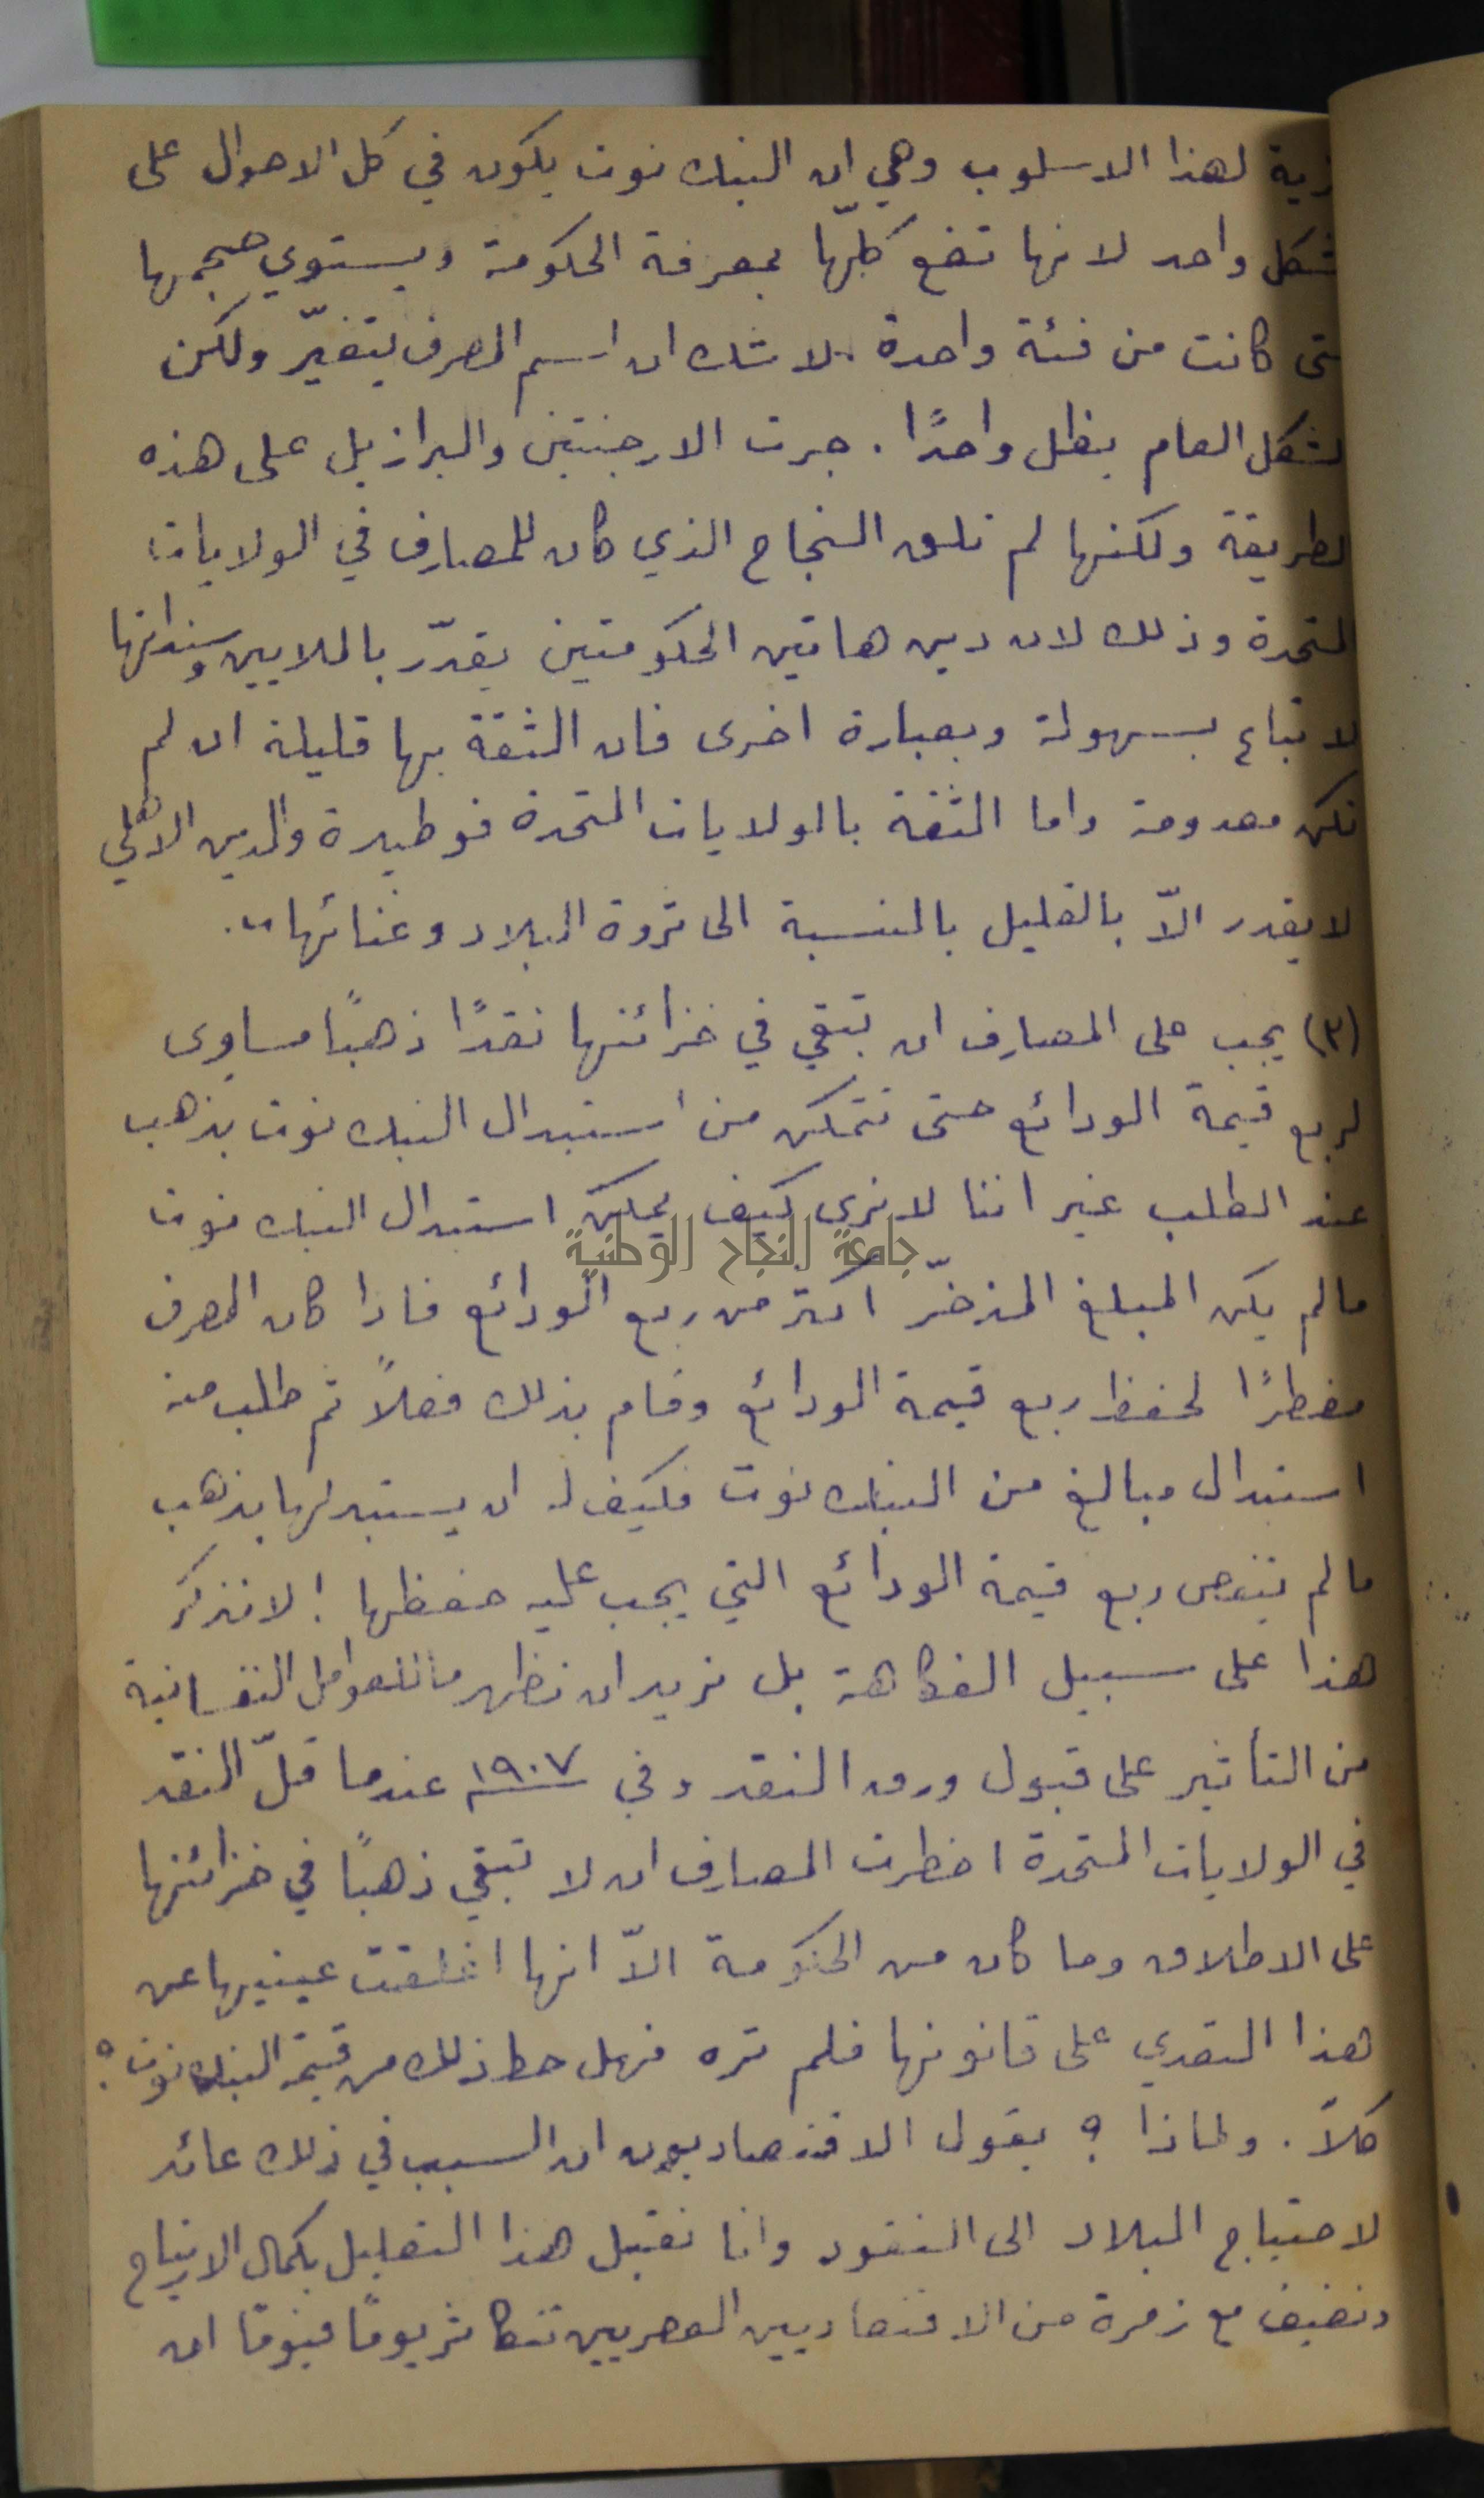 زية لهذا الاسلوب وهي ان البنك نوت يكون في كل الاحوال على
شكل واحد لانها تضع كلّها بمعرفة الحكومة ويستوي حجمها
متى كانت من فئة واحدة. لا شك ان اسم المصرف يتغيّر ولكن
لشكل العام يظل واحدًا. جرت الارجنتين والبرازيل على هذه
لطريقة ولكنها لم تلق النجاح الذي كان للمصارف في الولايات
لمتحدة وذلك لان دين هاتين الحكومتين يقدّر بالملايين وسنداتها
لا تباع بسهولة وبعبارة اخرى فان الثقة بها قليلة ان لم
تكن معدومة واما الثقة بالولايات المتحدة فوطيدة والدين الاهلي
لا يقدر الاّ بالقليل بالنسبة الى ثروة البلاد وغنائها.
(٣) يجب على المصارف ان تبقي في خزائنها نقدًا ذهبًا مساوى
لربع قيمة الودائع حتى تتمكن من استبدال البنك نوت بذهب
عند الطلب غير اننا لا نرى كيف يمكن استبدال البنك نوت
جامعة النجاح الوطنية
مالم يكن المبلغ المذخّر اكثر من ربع الودائع فاذا كان المصرف
مضطرًا لحفظ ربع قيمة الودائع وقام بذلك فعلاً ثم طلب منه
استبدال مبالغ من البنك نوت فكيف له ان يستبدلها بذهب
مالم ينقص ربع قيمة الودائع التي يجب عليه حفظها! لا نذكر
هذا على سبيل الفكاهة بل نريد ان نظهر ما للعوامل النفسانية
من التأثير على قبول ورق النقد وفي ١٩٠٧ عندما قلّ النقد
في الولايات المتحدة اضطرت المصارف ان لا تبقي ذهبًا في خزائنها
على الاطلاق وما كان من الحكومة الاّ انها اغلقت عينيها عن
هذا التعدي على قانونها فلم تره فهل حط ذلك من قيمة البنك نوت؟
كلاّ. ولماذا؟ يقول الاقتصاديون ان السبب في ذلك عائد
لاحتياج البلاد الى النقود وانا نقبل هذا التعليل بكمال الارتياح
ونضيف مع زمرة من الاقتصاديين العصريين تتكاثر يومًا فيومًا ان